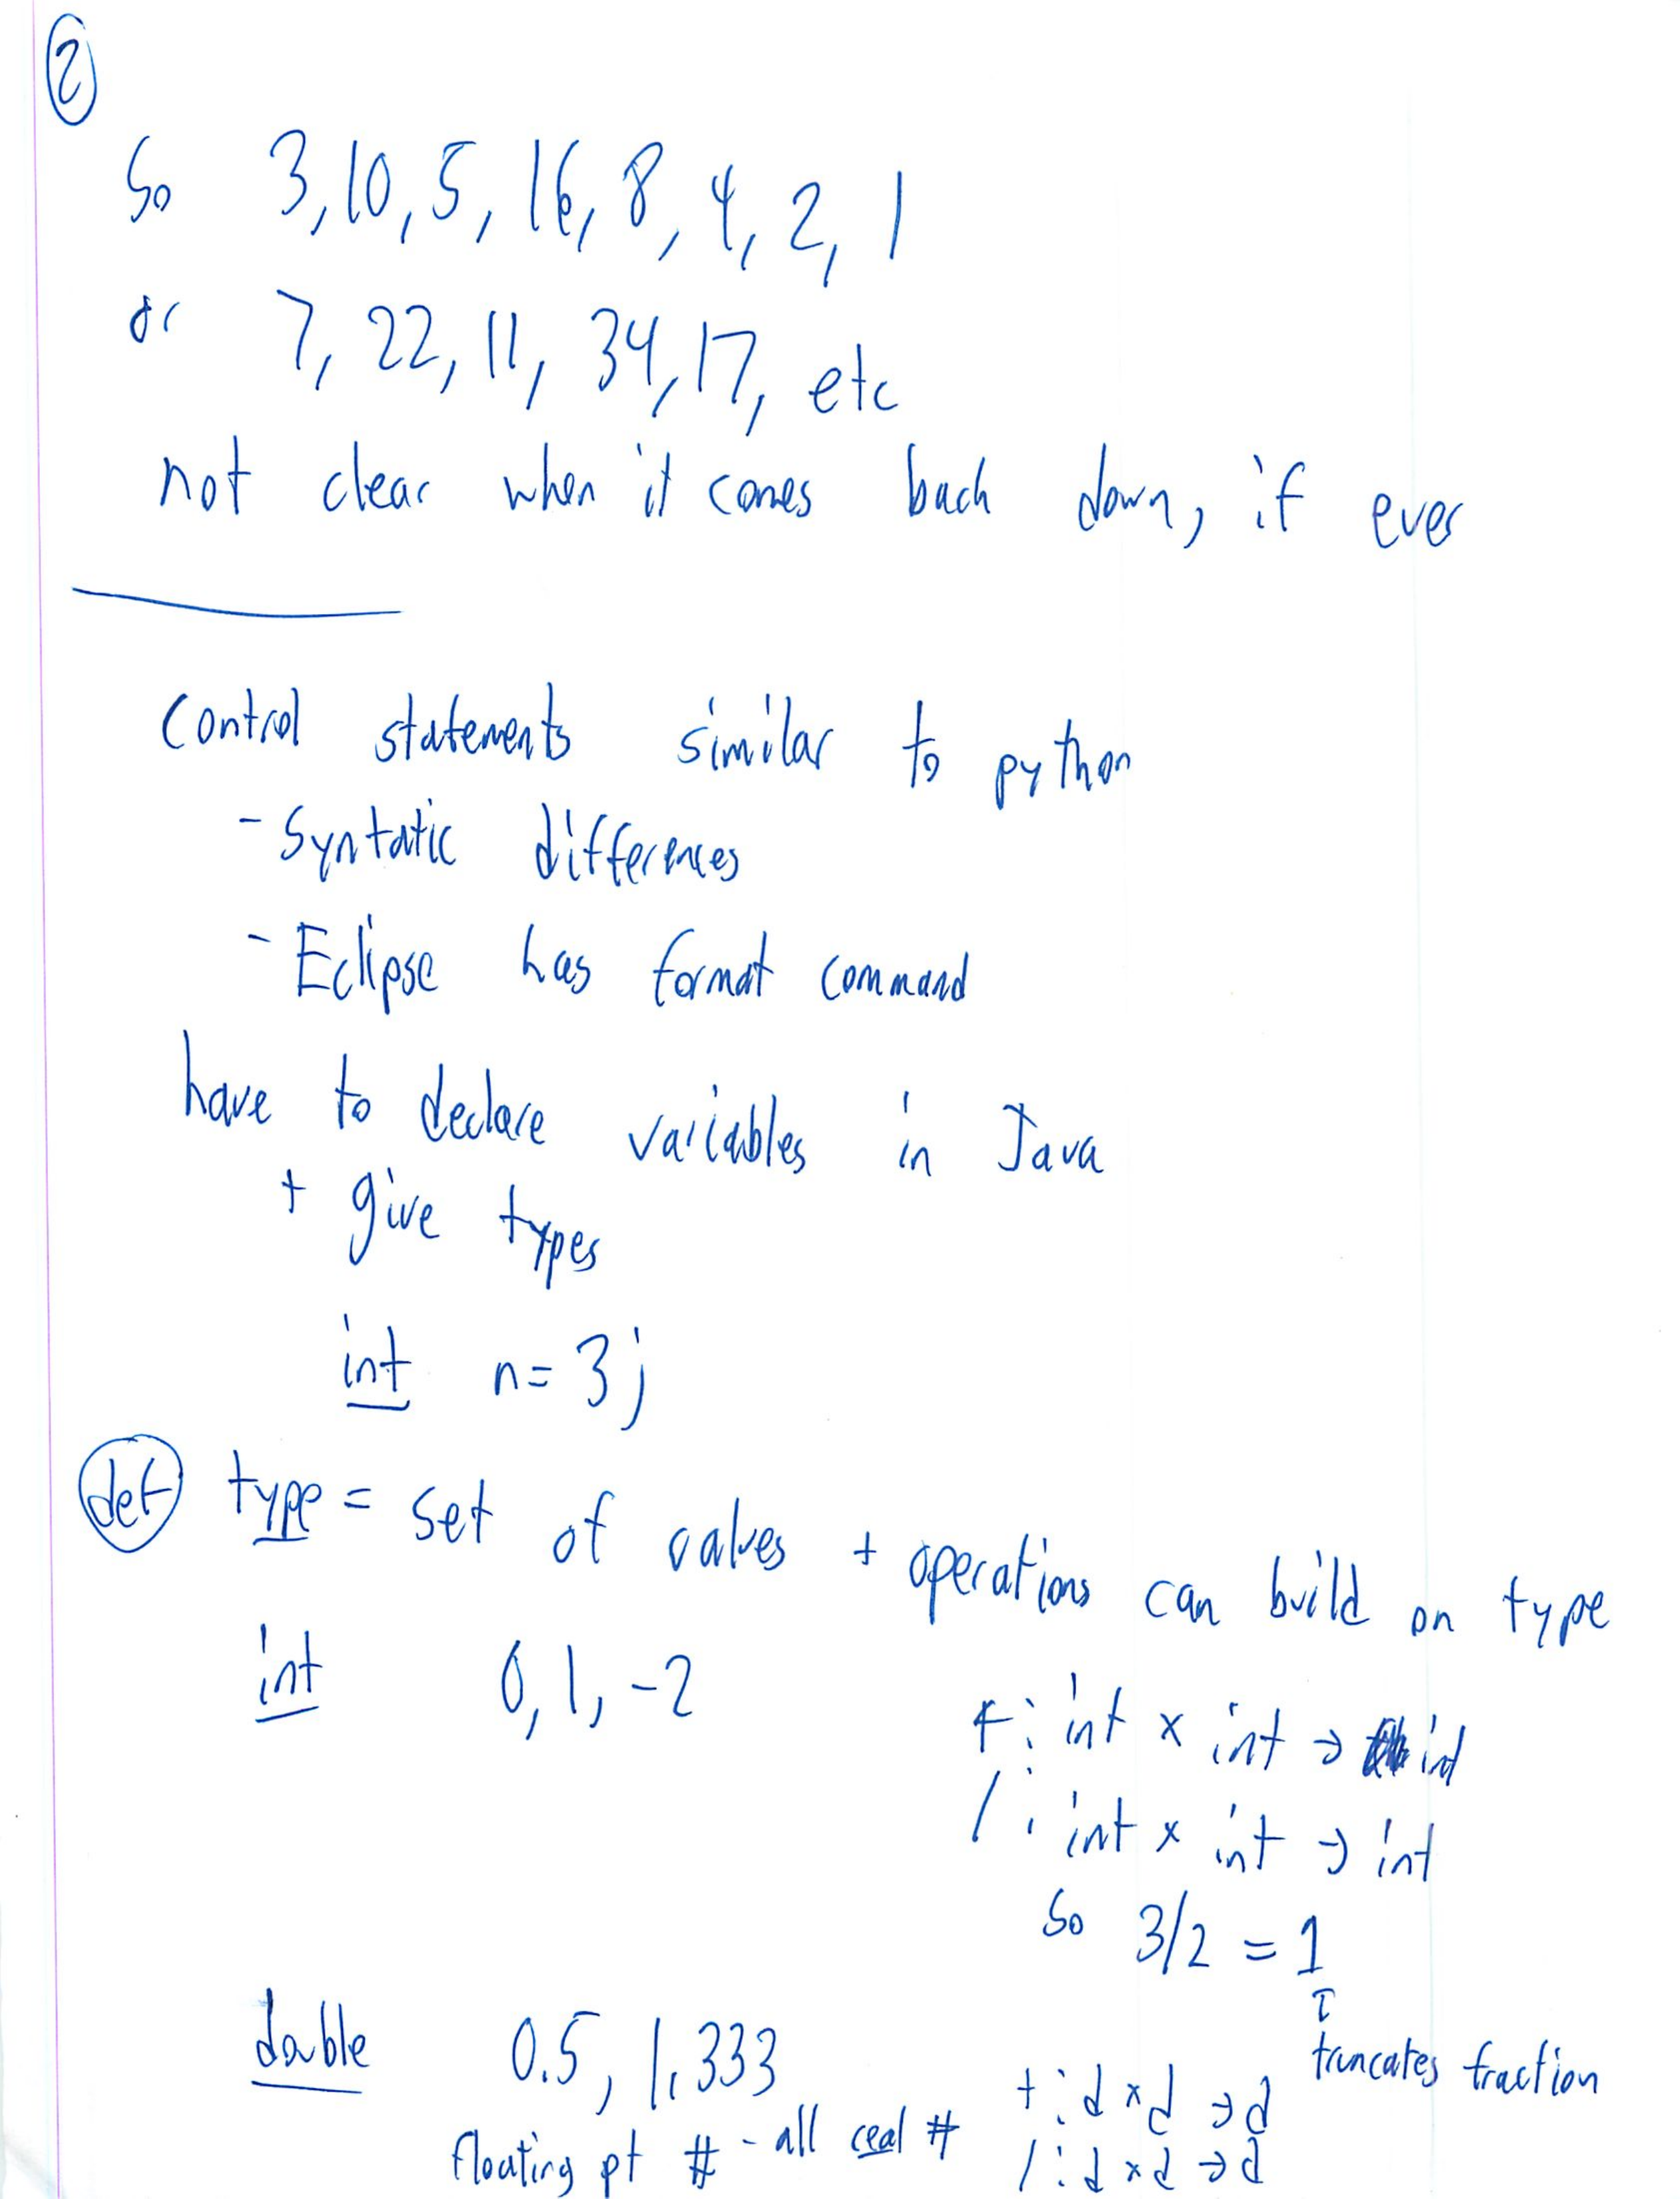 2
So 3, 10, 5, 16, 8, 4, 2, 1
or 7, 22, 11, 34, 17, etc
not clear when it comes back down, if ever
Control statements similar to python
- Syntatic differences
- Eclipse has format command
have to declare variables in Java
+ give types
int n = 3;
def type = set of values + operations can build on type
int 0, 1, -2
+ : int x int → int
/ : int x int → int
So 3/2 = 1
↑
truncates fraction
double 0.5, 1.333
+ : d x d → d
floating pt # - all real #
/ : d x d → d